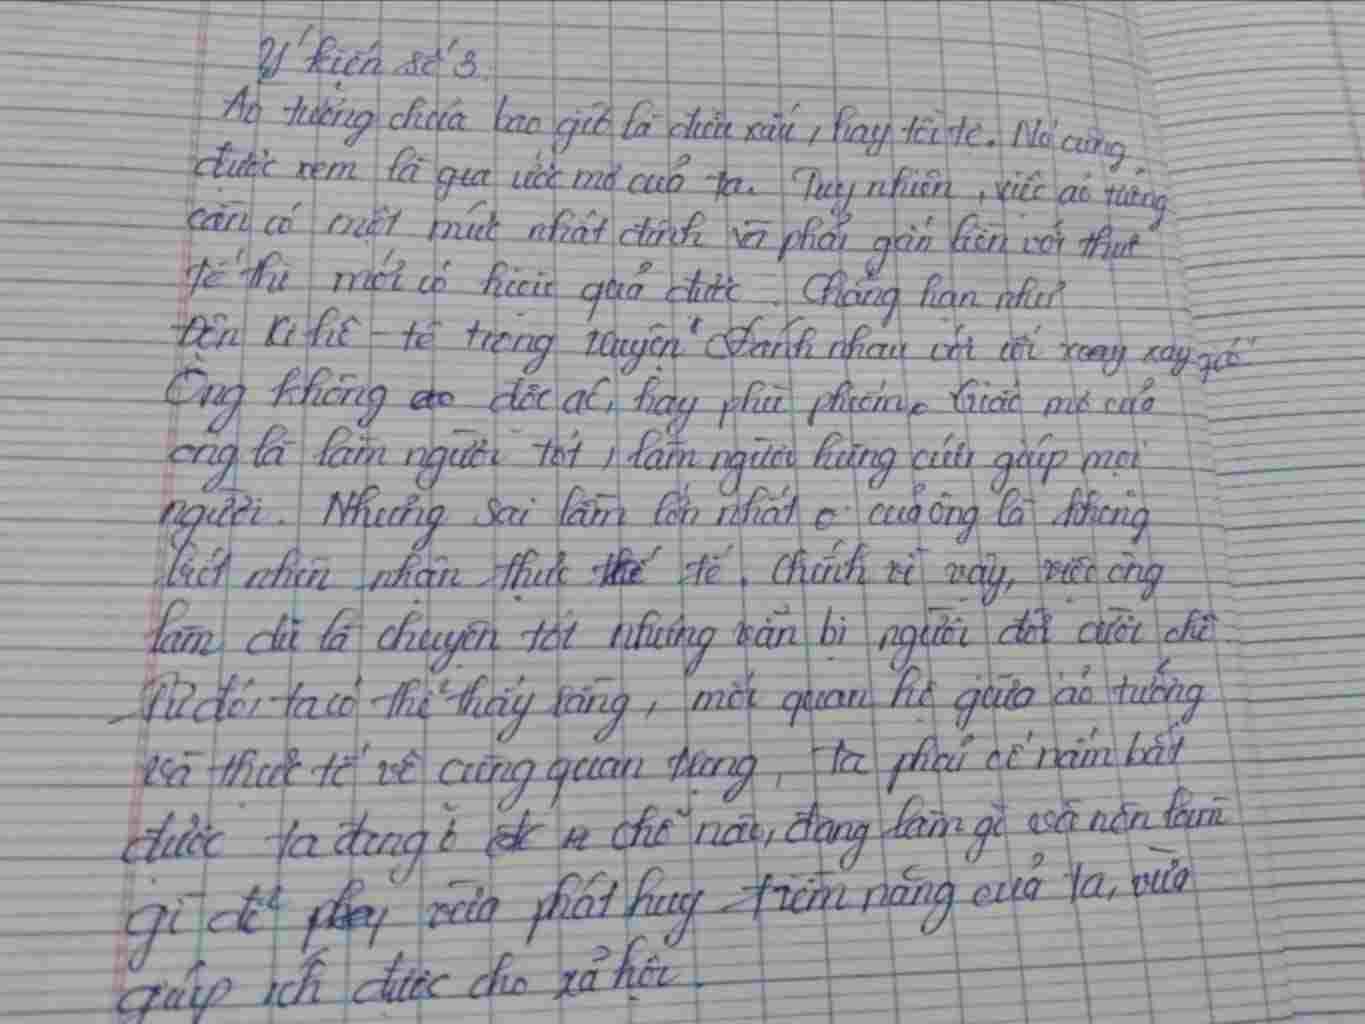 Ý kiến số 3
Ảo tưởng chưa bao giờ là điều xấu, hay tồi tệ. Nó cũng
được xem là qua ước mơ của ta. Tuy nhiên, việc ảo tưởng
cần có một mức nhất định và phải gắn liền với thực
tế thì mới có hiệu quả được. Chẳng hạn như
Đôn Ki hô - tê trong truyện "Đánh nhau với cối xoay xay gió"
Ông không độc ác, hay phù phiếm. Giấc mơ của
ông là làm người tốt, làm người hùng cứu giúp mọi
người. Nhưng sai lầm lớn nhất của ông là không
biết nhìn nhận thực tế. Chính vì vậy, việc ông
làm dù là chuyện tốt nhưng vẫn bị người đời cười chê
Từ đó, ta có thể thấy rằng, mối quan hệ giữa ảo tưởng
và thực tế vô cùng quan trọng, ta phải cố nắm bắt
được ta đang ở chỗ nào, đang làm gì và nên làm
gì để vừa phát huy tiềm năng của ta, vừa
giúp ích được cho xã hội.